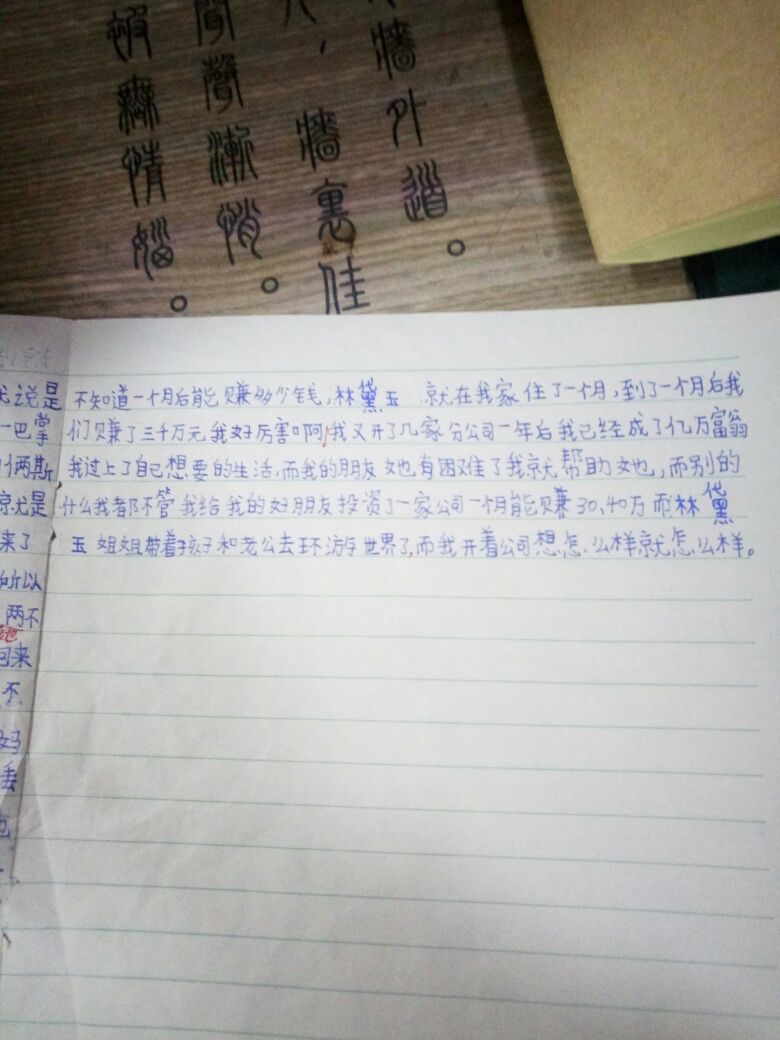 墙外道。
人，墙里佳
闻声渐悄。
被无情恼。
我说是
一巴掌
们俩斯
就是
来了
所以
两不
她
回来
不
妈
丢
也
不知道一个月后能赚多少钱，林黛玉 就在我家住了一个月，到了一个月后我
们赚了三千万元我好厉害啊，我又开了几家分公司一年后我已经成了亿万富翁
我过上了自己想要的生活，而我的朋友她有困难了我就帮助她，而别的
什么我都不管我给我的好朋友投资了一家公司一个月能赚30,40万而林黛
玉姐姐带着孩子和老公去环游世界了，而我开着公司想怎么样就怎么样。